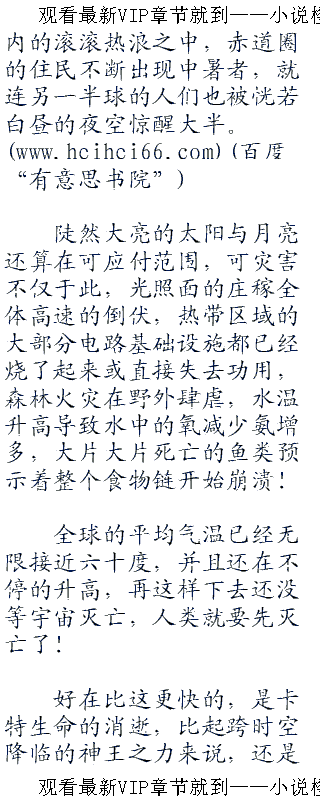 观看最新VIP章节就到——小说检
内的滚滚热浪之中，赤道圈
的住民不断出现中暑者，就
连另一半球的人们也被恍若
白昼的夜空惊醒大半。
(www.hcihci66.com)(百度
“有意思书院”)
陡然大亮的太阳与月亮
还算在可应付范围，可灾害
不仅于此，光照面的庄稼全
体高速的倒伏，热带区域的
大部分电路基础设施都已经
烧了起来或直接失去功用，
森林火灾在野外肆虐，水温
升高导致水中的氧减少氨增
多，大片大片死亡的鱼类预
示着整个食物链开始崩溃！
全球的平均气温已经无
限接近六十度，并且还在不
停的升高，再这样下去还没
等宇宙灭亡，人类就要先灭
亡了！
好在比这更快的，是卡
特生命的消逝，比起跨时空
降临的神王之力来说，还是
观看最新VIP章节就到——小说检